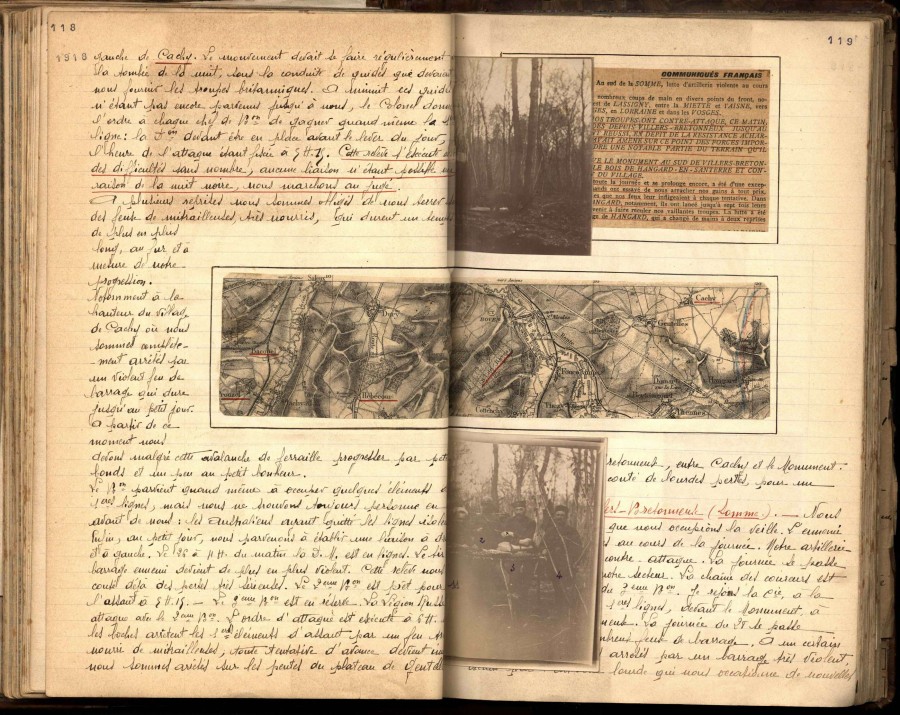 118
1918 gauche de Cachy. Le mouvement devait se faire régulièrement
à la tombée de la nuit, sous la conduite de guides que devaient
nous fournir les troupes britanniques. A minuit ces guides
n'étant pas encore parvenus jusqu'à nous, le Colonel donne
l'ordre à chaque chef de Bon de gagner quand même la
ligne: la devant être en place avant le lever du jour,
l'heure de l'attaque étant fixée à 5H.15. Cette relève s'exécute
des difficultés sans nombre, aucune liaison n'étant possible
raison de la nuit noire, nous marchons au jugé.
A plusieurs reprises nous sommes obligés de nous terrer
des feux de mitrailleuses, très nourris, qui durent un temps
de plus en plus
long, au fur et à
mesure de notre
progression.
Notamment à la
hauteur du village
de Cachy où nous
sommes complète-
ment arrêtés par
un violent feu de
barrage qui dure
jusqu'au petit jour.
A partir de ce
moment nous
devons malgré cette avalanche de ferraille progresser par petits
bonds et un peu au petit bonheur.
Le Bon parvient quand même à occuper quelques éléments
1eres lignes, mais nous ne trouvons toujours personne en
avant de nous: les Australiens ayant quitté les lignes
Enfin, au petit jour, nous parvenons à établir une liaison à
et à gauche. Le 26 à 4H. du matin la D.M. est en lignes. Le
barrage ennemi devient de plus en plus violent. Cette relève nous
coûte déjà des pertes très sérieuses. Le 1er Bon est prêt pour
l'assaut à 5H.15. — Le 2eme Bon est en réserve. La Légion Russe
attaque avec le 2eme Bon. L'ordre d'attaque est exécuté à 6H.
les boches arrêtent les 1ers éléments d'assaut par un feu
nourri de mitrailleuses, toute tentative d'avance devient
nous sommes arrêtés sur les pentes du plateau de
119
COMMUNIQUÉS FRANÇAIS
Au sud de la SOMME, lutte d'artillerie violente au cours
nombreux coups de main en divers points du front, no-
est de LASSIGNY, entre la MIETTE et l'AISNE, vers
GES, en LORRAINE et dans les VOSGES.
NOS TROUPES ONT CONTRE-ATTAQUÉ, CE MATIN,
DEPUIS VILLERS-BRETONNEUX JUSQU'AU
LUCE, EN DÉPIT DE LA RÉSISTANCE ACHAR-
FAIT AMENÉ SUR CE POINT DES FORCES IMPOR-
DRE UNE NOTABLE PARTIE DU TERRAIN QU'IL
LE MONUMENT AU SUD DE VILLERS-BRETON-
LE BOIS DE HANGARD-EN-SANTERRE ET CON-
DU VILLAGE.
toute la journée et se prolonge encore, a été d'une excep-
mands ont essayé de nous arracher nos gains à tout prix,
que nos feux leur infligeaient à chaque tentative. Dans
HANGARD, notamment, ils ont lancé jusqu'à sept fois leurs
venir à faire reculer nos vaillantes troupes. La lutte a été
ge de HANGARD, qui a changé de mains à deux reprises
Dury
Hébécourt
Boves
Cachy
Gentelles
Domart
Hangard
Thennes
retonneux, entre Cachy et le Monument:
coûté de lourdes pertes, pour un
ers-Bretonneux (Somme). — Nous
que nous occupions la veille. L'ennemi
au cours de la journée. Notre artillerie
contre-attaque. La journée se passe
notre secteur. La chaîne des coureurs est
du 2eme Bon. Je rejoins la Cie, à la
1eres lignes, devant le Monument, à
neux. La journée du 28 se passe
nombreux feux de barrage. A un certain
arrêtés par un barrage très violent,
lourde qui nous occasionne de nouvelles
2
3
4